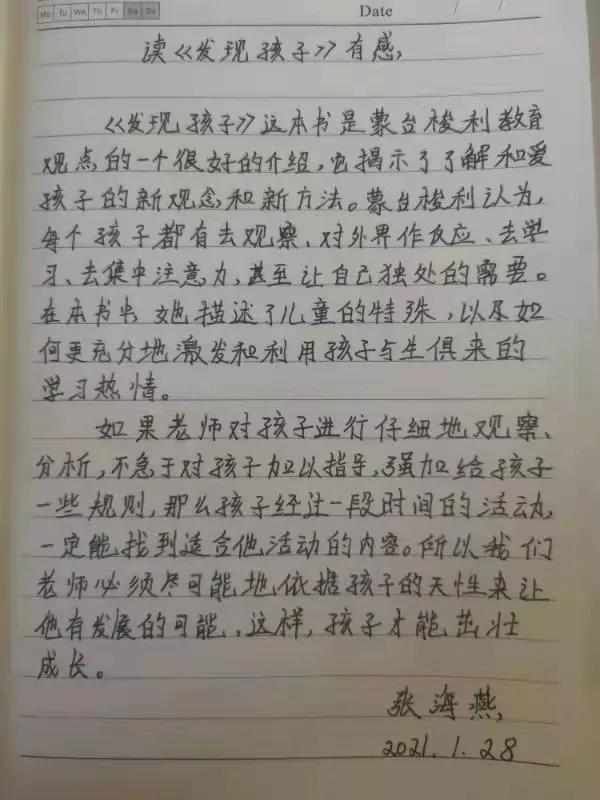 Mo Tu We Th Fr Sa Su
Date / /
读《发现孩子》有感,
《发现孩子》这本书是蒙台梭利教育
观点的一个很好的介绍,它揭示了了解和爱
孩子的新观念和新方法。蒙台梭利认为,
每个孩子都有去观察、对外界作反应、去学
习、去集中注意力,甚至让自己独处的需要。
在本书中 她描述了儿童的特殊,以及如
何更充分地激发和利用孩子与生俱来的
学习热情。
如果老师对孩子进行仔细地观察、
分析,不急于对孩子加以指导,强加给孩子
一些规则,那么孩子经过一段时间的活动,
一定能找到适合他活动的内容。所以我们
老师必须尽可能地依据孩子的天性来让
他有发展的可能,这样,孩子才能茁壮
成长。
张海燕,
2021.1.28